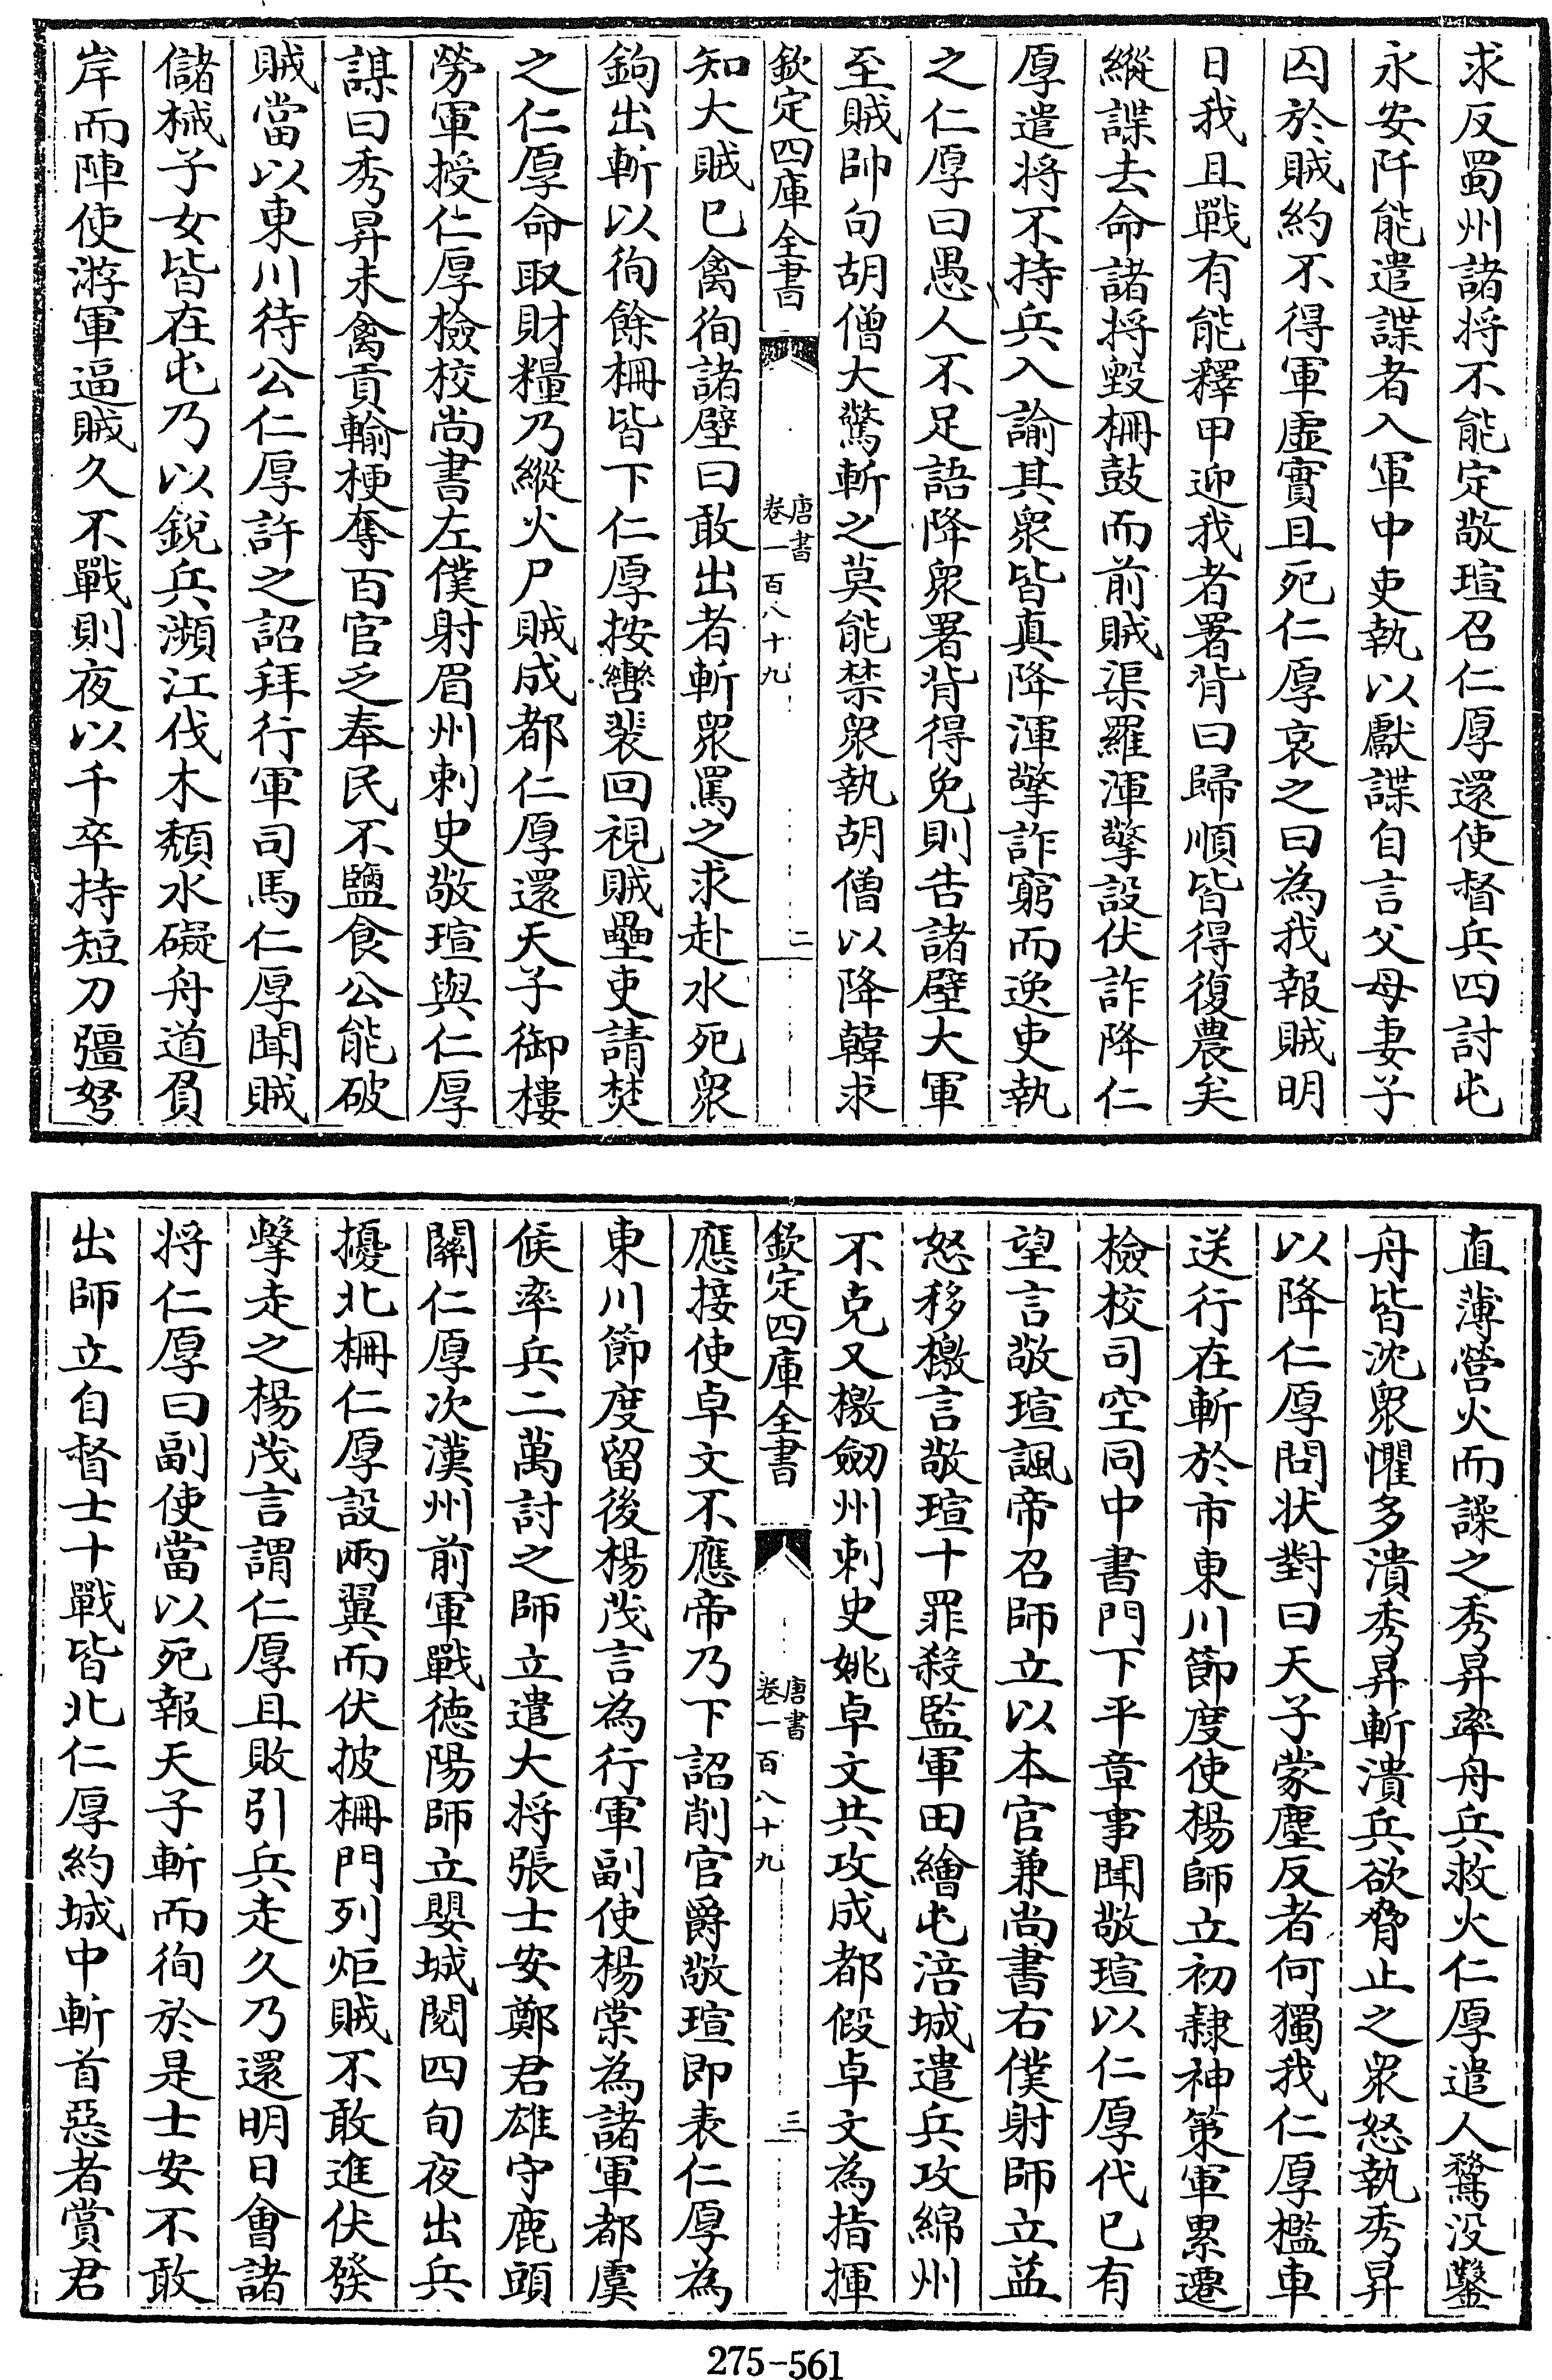 求反蜀州諸将不能定敬瑄召仁厚還使督兵四討屯
永安阡能遣諜者入軍中吏執以獻諜自言父母妻子
囚於賊約不得軍虛實且死仁厚哀之曰為我報賊明
日我且戰有能釋甲迎我者署背曰歸順皆得復農矣
縱諜去命諸將毀柵鼓而前賊渠羅渾擎設伏詐降仁
厚遣将不持兵入諭其衆皆真降渾擎詐窮而逸吏執
之仁厚曰愚人不足語降衆署背得免則告諸壁大軍
至賊帥句胡僧大驚斬之莫能禁衆執胡僧以降韓求
欽定四庫全書
唐書
卷一百八十九
二
知大賊已禽徇諸壁曰敢出者斬衆罵之求赴水死衆
鉤出斬以徇餘柵皆下仁厚按轡裴回視賊壘吏請焚
之仁厚命取財糧乃縱火尸賊成都仁厚還天子御樓
勞軍授仁厚檢校尚書左僕射眉州刺史敬瑄與仁厚
謀曰秀昇未禽貢輸梗奪百官乏奉民不鹽食公能破
賊當以東川待公仁厚許之詔拜行軍司馬仁厚聞賊
儲械子女皆在屯乃以銳兵瀕江伐木頹水礙舟道負
岸而陣使游軍逼賊久不戰則夜以千卒持短刀彊弩
直薄營火而譟之秀昇率舟兵救火仁厚遣人鶩没鑿
舟皆沈衆懼多潰秀昇斬潰兵欲脅止之衆怒執秀昇
以降仁厚問狀對曰天子蒙塵反者何獨我仁厚檻車
送行在斬於市東川節度使楊師立初隸神策軍累遷
檢校司空同中書門下平章事聞敬瑄以仁厚代已有
望言敬瑄諷帝召師立以本官兼尚書右僕射師立益
怒移檄言敬瑄十罪殺監軍田繪屯涪城遣兵攻綿州
不克又檄劔州刺史姚卓文共攻成都假卓文為指揮
欽定四庫全書
唐書
卷一百八十九
三
應接使卓文不應帝乃下詔削官爵敬瑄即表仁厚為
東川節度留後楊茂言為行軍副使楊棠為諸軍都虞
候率兵二萬討之師立遣大将張士安鄭君雄守鹿頭
關仁厚次漢州前軍戰德陽師立嬰城閱四旬夜出兵
擾北柵仁厚設兩翼而伏披柵門列炬賊不敢進伏發
擊走之楊茂言謂仁厚且敗引兵走久乃還明日會諸
将仁厚曰副使當以死報天子斬而徇於是士安不敢
出師立自督士十戰皆北仁厚約城中斬首惡者賞君
275-561